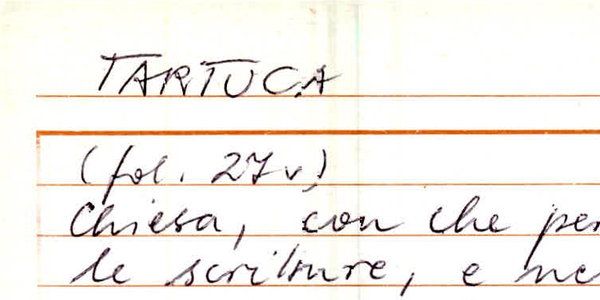 TARTUCA
(fol. 27v)
Chiesa, con che per
le scritture, e ne